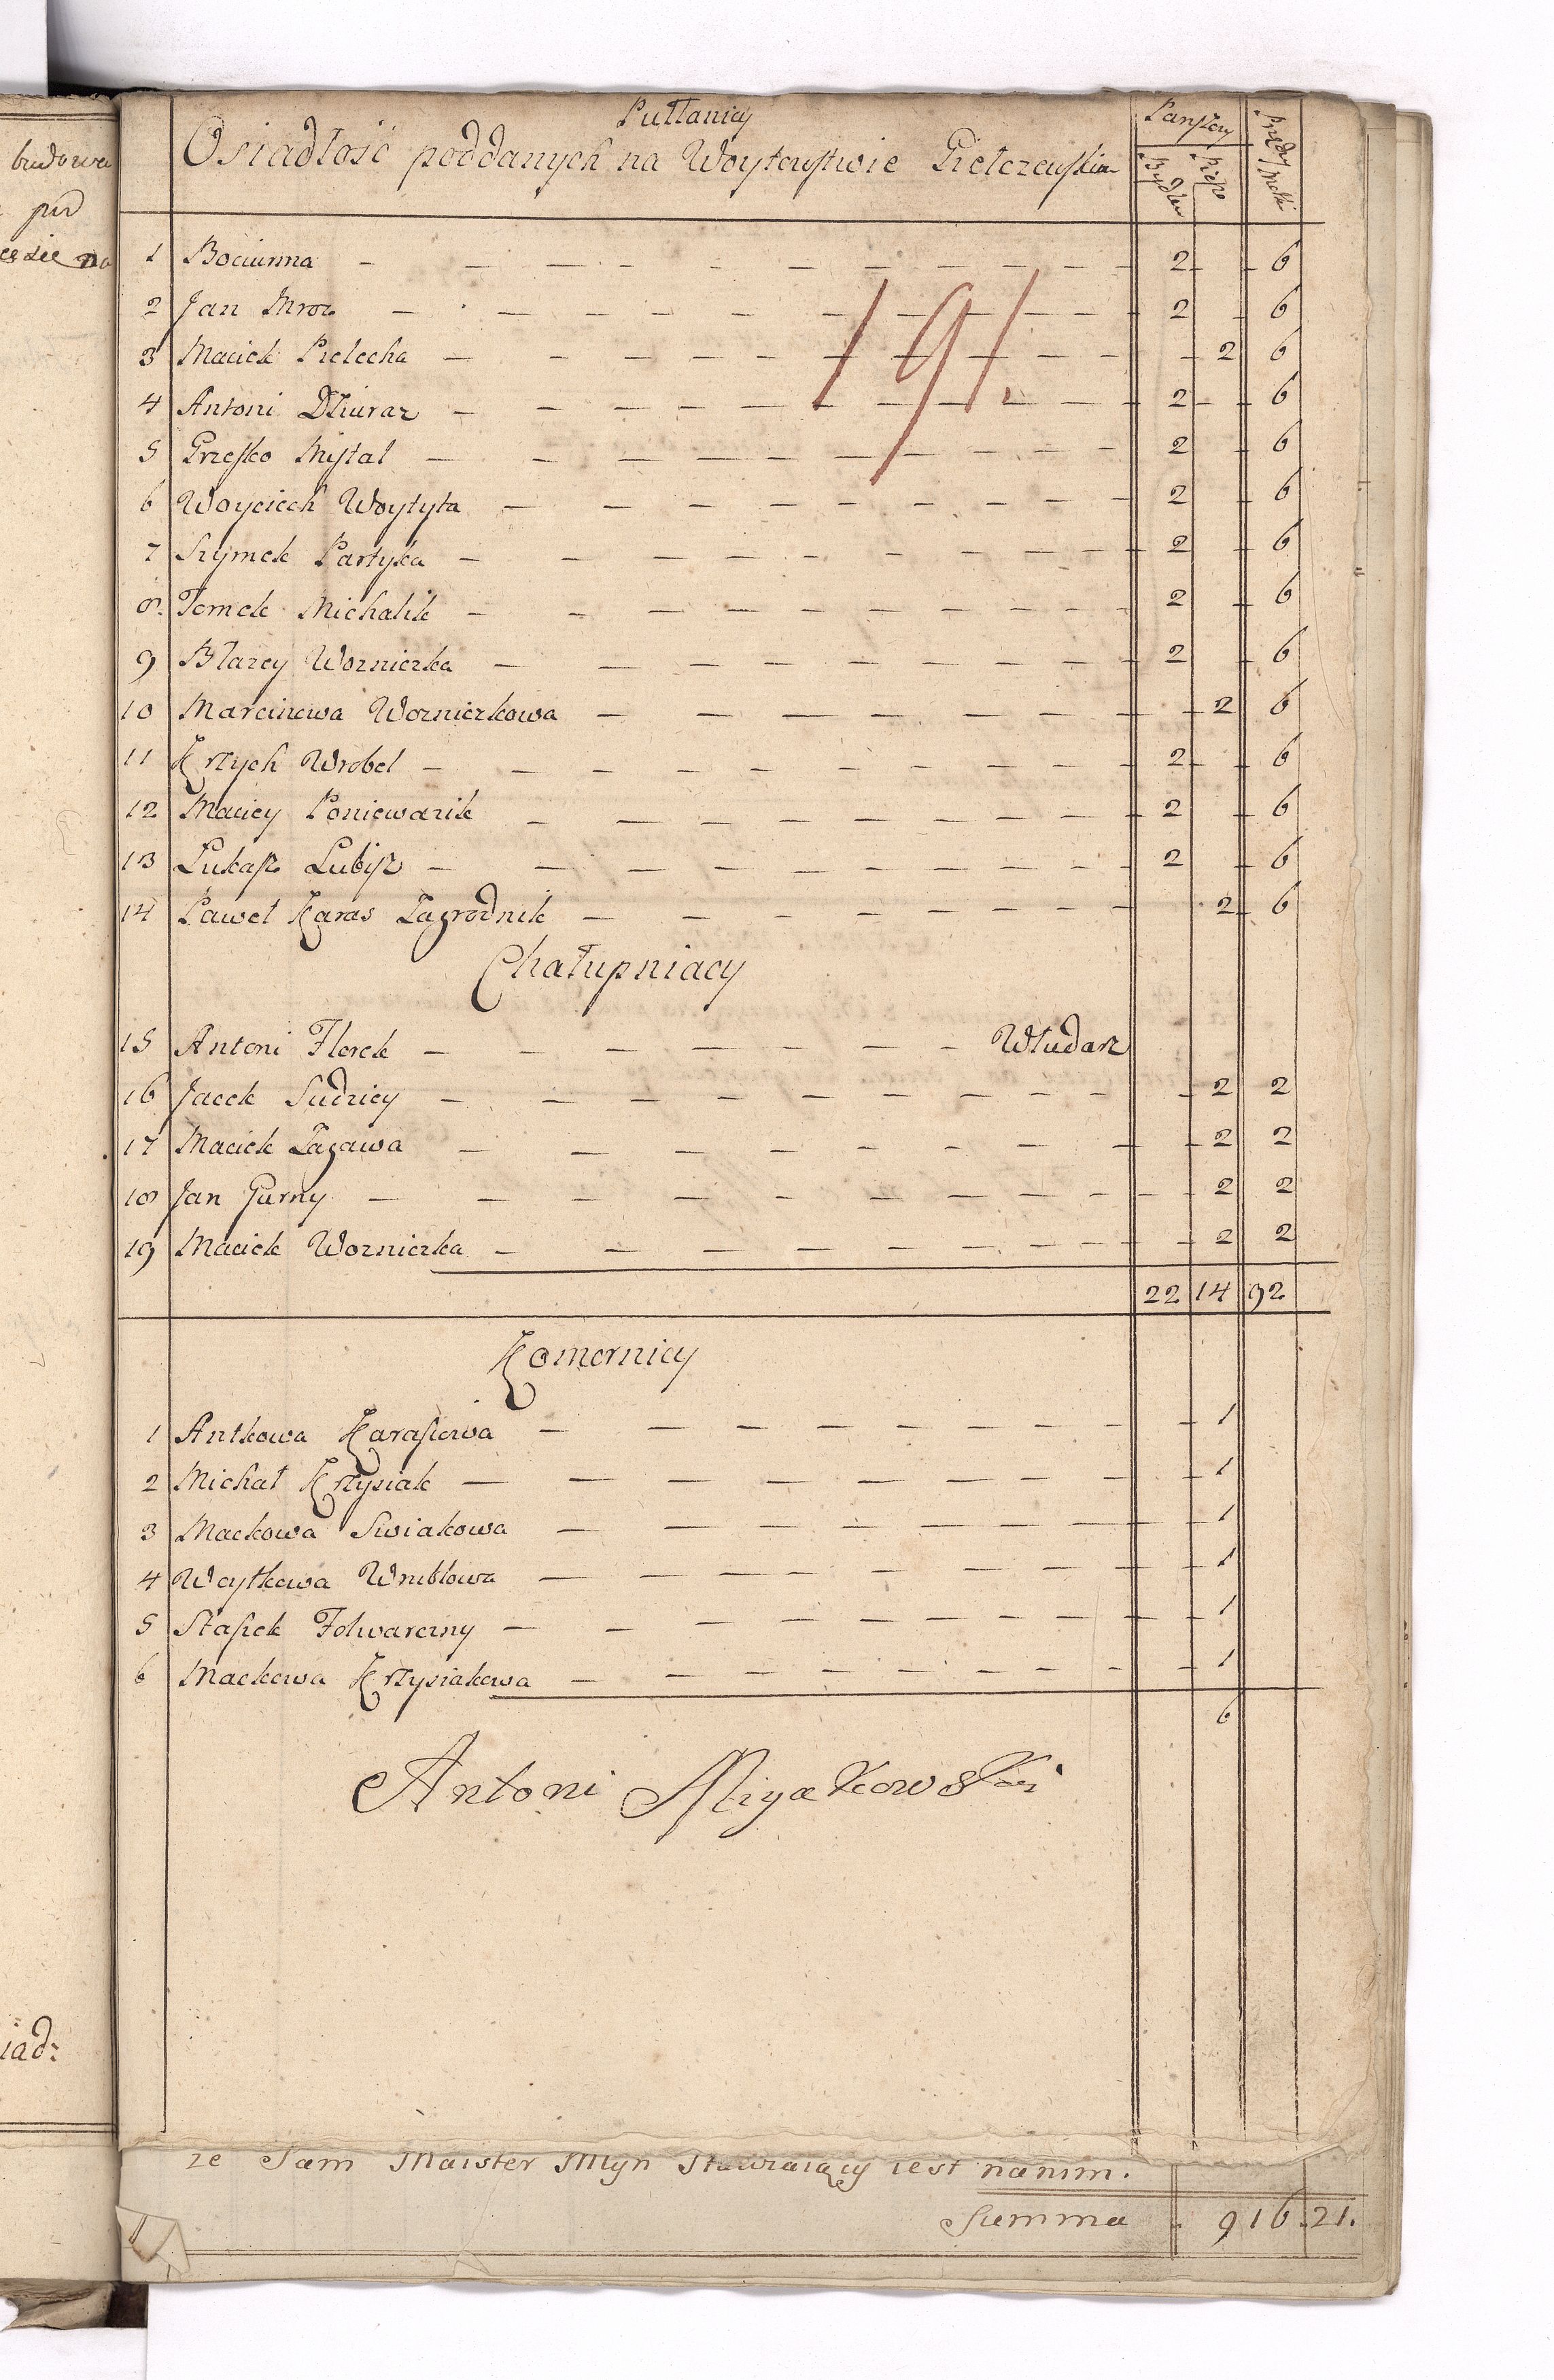 budowa
pod
Pułłanicy
Osiadłość poddanych na Woytowstwie Giełczewskim
Panszczy
Bydłem
Piesze
191.
1 Bociunna 2 6
2 Jan Mroz 2 6
3 Maciek Pielecha 2 6
4 Antoni Dziuraz 2 6
5 Grzesko Misztal 2 6
6 Woyciech Woytyła 2 6
7 Szymek Partyka 2 6
8. Tomek Michalik 2 6
9 Błazey Wozniczka 2 6
10 Marcinowa Wozniczkowa 2 6
11 Krzych Wrobel 2 6
12 Maciey Poniewazik 2 6
13 Łukasz Lubisz 2 6
14 Paweł Karas Zagrodnik 2 6
Chałupniacy
15 Antoni Florek Włudarz
16 Jacek Sudziey 2 2
17 Maciek Zagawa 2 2
18 Jan Gurny 2 2
19 Maciek Wozniczka 2 2
22 14 92
Komornicy
1 Antkowa Karasiowa 1
2 Michał Krzysiak 1
3 Mackowa Swiakowa 1
4 Woytkowa Wrublowa 1
5 Stasiek Folwarczny 1
6 Mackowa Krzysiakowa 1
6
Antoni
iad:
ze Sam Maister Młyn Stawiaiący iest nanim.
Summa 916.21.